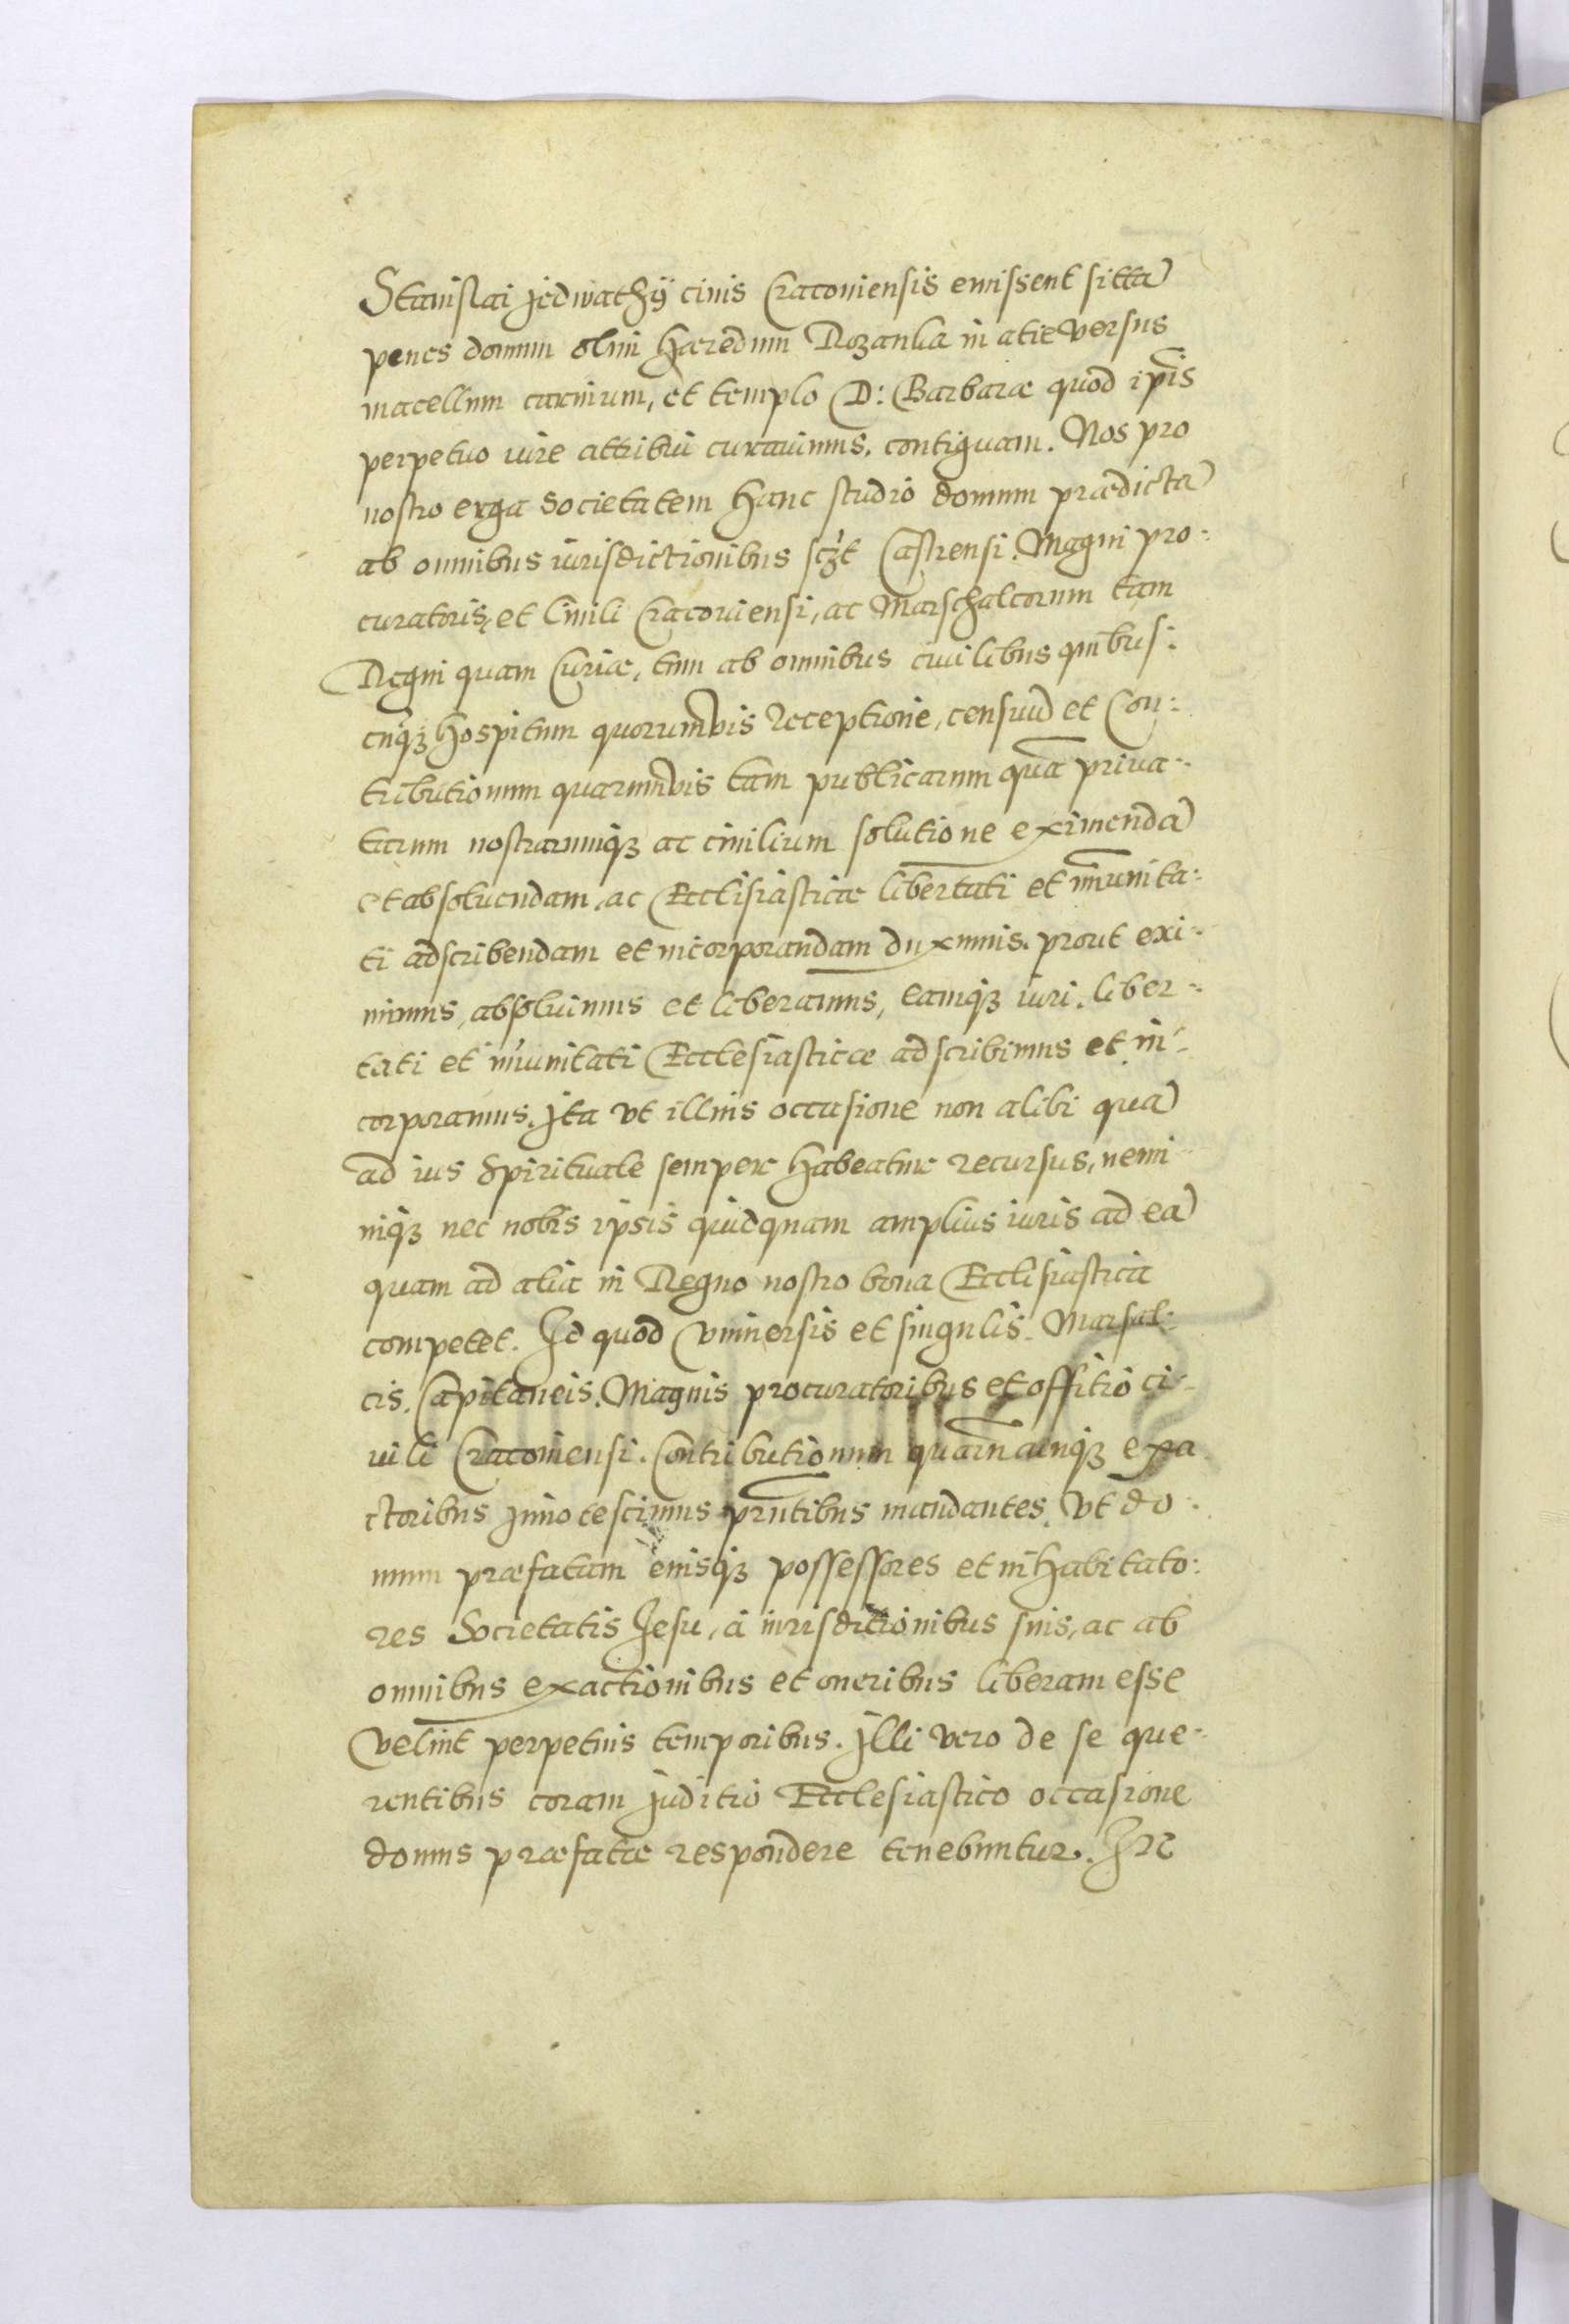 Stanislai Jedwathÿ ciuis Cracouiensis emissent sittā
penes domum olim Hæredum Rozanka in acie versus
macellum carnium, et templo D: Barbaræ quod ip̄is
perpetuo iure attribui curauimus. contiguam. Nos pro
nostro erga Societatem hanc studio domum prædictā
ab omnibus iurisdictionibus sczt Castrensi. Magni pro:
curatoris, et Ciuili Cracouiensi, ac Marschalcorum tam
Regni quam Curiæ, tum ab omnibus ciuilibus quibus:
cuqꝫ Hospitum quorumuis receptione, censuū et Con:
tributionum quarumuis tam publicarum quā priua:
tarum nostrarumqꝫ ac ciuilium solutione eximendā
et absoluendam, ac Ecclesiasticæ libertati et im̄unita:
ti adscribendam et incorporandam duximus. prout exi:
mimus, absoluimus et liberamus, eamqꝫ iuri. liber:
tati et im̄unitati Ecclesiasticæ adscribimus et in:
corporamus. Ita vt illius occasione non alibi quā
ad ius Spirituale semper habeatur recursus, nemi
niqꝫ nec nobis ipsis quidquam amplius iuris ad eā
quam ad alia in Regno nostro bona Ecclesiastica
competet. Id quod vniuersis et singulis. Marsal:
cis. Capitaneis. Magnis procuratoribus et offitio ci:
uili Cracouiensi. Contributionum quarūcunqꝫ exa
ctoribus Innotescimus prn̄tibus mandantes. Vt do:
mum præfatam eiusqꝫ possessores et inhabitato:
res Societatis Jesu, à iurisditionibus suis, ac ab
omnibus exactionibus et oneribus liberam esse
velint perpetuis temporibus. Illi vero de se que:
rentibus coram Juditio Ecclesiastico occasione
domus præfatæ respondere tenebuntur. In